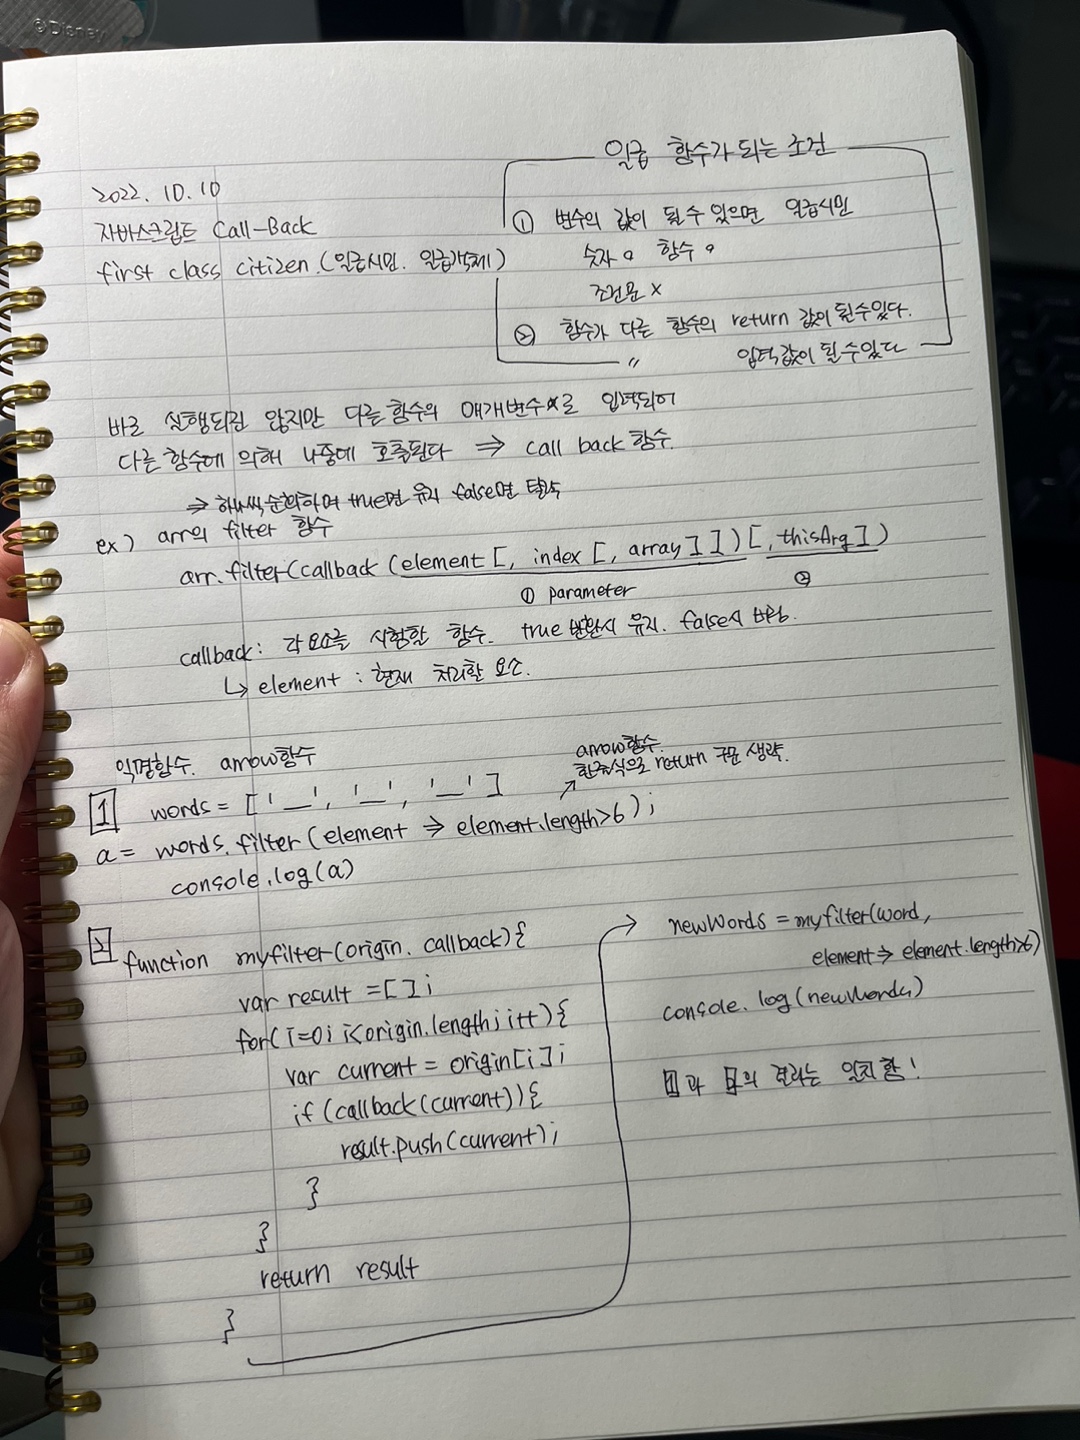 ©Disney
2022. 10. 10
자바스크립트 Call-Back
first class citizen. (일급시민. 일급객체)
일급 함수가 되는 조건
① 변수의 값이 될 수 있으면 일급시민
숫자 o 함수 o
조건문 x
② 함수가 다른 함수의 return 값이 될 수 있다.
〃 입력값이 될 수 있다
바로 실행되진 않지만 다른 함수의 매개변수로 입력되어
다른 함수에 의해 나중에 호출된다 ⇒ call back 함수.
⇒ 하나씩 순회하며 true면 유지 false면 탈락
ex) arr의 filter 함수
arr.filter(callback (element [, index [, array] ] ) [, thisArg] )
① parameter ②
callback : 각 요소를 시험할 함수. true 반환시 유지. false시 버림.
↳ element : 현재 처리할 요소.
익명함수. arrow함수
arrow함수.
한줄식으로 return 구문 생략.
1 words = [ '__', '__', '__' ]
a = words.filter (element ⇒ element.length>6) ;
console.log(a)
2 function myfilter(origin. callback){
var result = [ ] ;
for( i=0; i<origin.length; i++) {
var current = origin[i] ;
if (callback (current)) {
result.push (current) ;
}
}
return result
}
newWords = myfilter(word,
element ⇒ element.length>6)
console.log (newWords)
1과 2의 결과는 일치함!